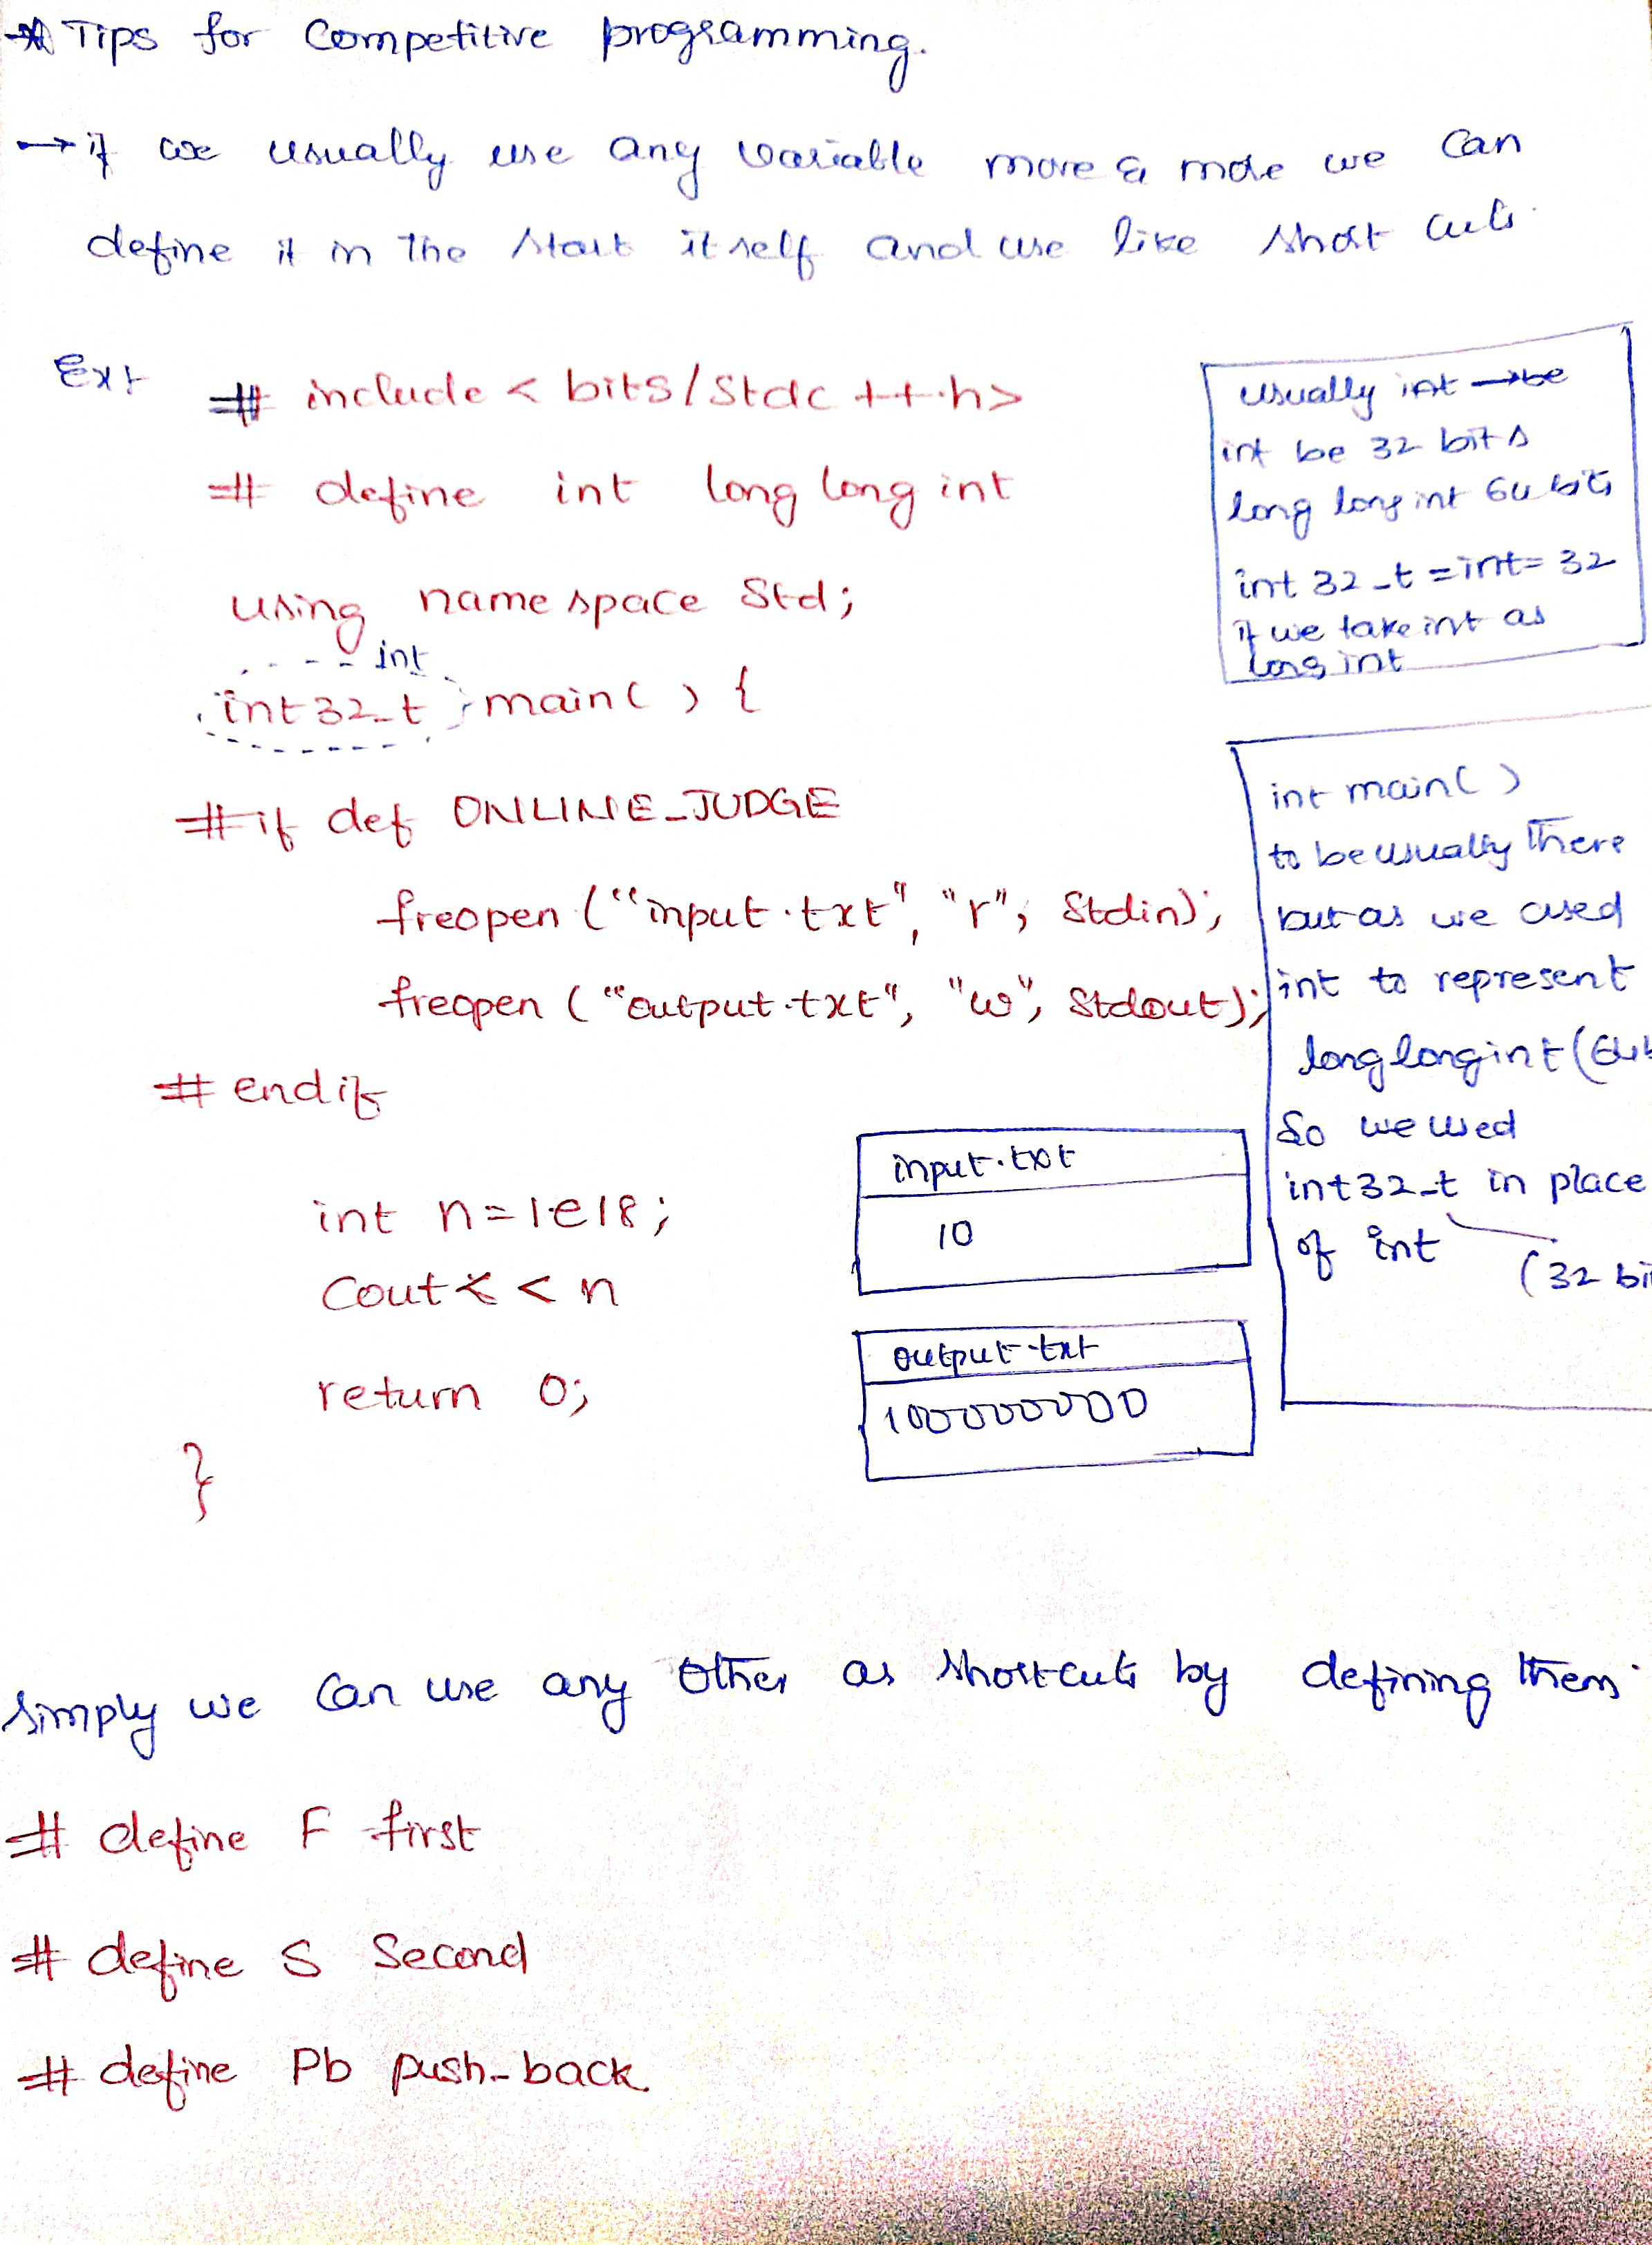 Tips for Competitive programming.
→ if we usually use any variable more & more we can
define it in the start itself and use like short cuts.
Ex:
# include < bits/stdc ++.h>
# define int long long int
using namespace Std;
int
int32_t main( ) {
#if def ONLINE_JUDGE
freopen ("input.txt", "r", Stdin);
freopen ("output.txt", "w", Stdout);
# endif
int n = 1e18;
Cout < < n
return 0;
}
usually int → be
int be 32 bits
long long int 64 bits
int 32_t = int = 32
if we take int as
long int
int main( )
to be usually there
but as we used
int to represent
long long int (64
So we used
int32_t in place
of int
(32 bi
input.txt
10
output.txt
1000000000
Simply we can use any other as shortcuts by defining them.
# define F first
# define S Second
# define Pb push_back